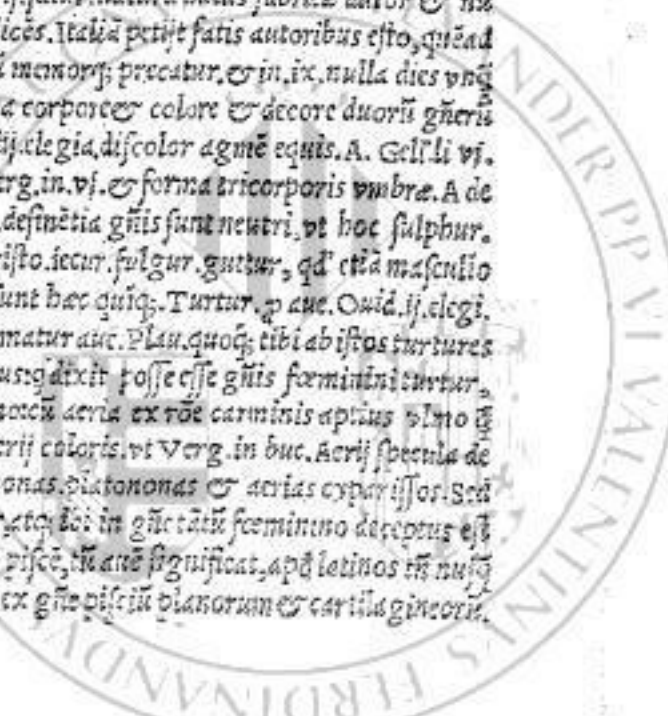 ices. Italiã petijt fatis autoribus esto, quẽad
memorq; precatur. & in. ix. nulla dies vnq̃
a corpore & colore & decore duorũ gñerũ
ij. elegia, discolor agmẽ equis. A. Gelli vj.
rg. in. vj. & forma tricorporis vmbræ. A de
definẽtia gñis sunt neutri, vt hoc sulphur.
isto. iecur. fulgur. guttur, qd' etiã masculio
unt hæc quiq;. Turtur. ꝓ aue. Ouid. ij. elegi.
matur aue. Plau. quoq; tibi ab istos turtures
dixit posse esse gñis fœminini turtur,
aeria ex rõe carminis aptius vlmo
rij coloris. vt Verg. in buc. Aerij specula de
onas. platononas & aerias cyparissos. Sed
in gñe tãtũ fœminino deceptus est
piscẽ, tñ auẽ significat, apd̃ latinos tñ nusq̃
ex gñe pisciũ planorum & cartilagineorũ.
NDER PP VI VALENTINVS FERDINANDVS